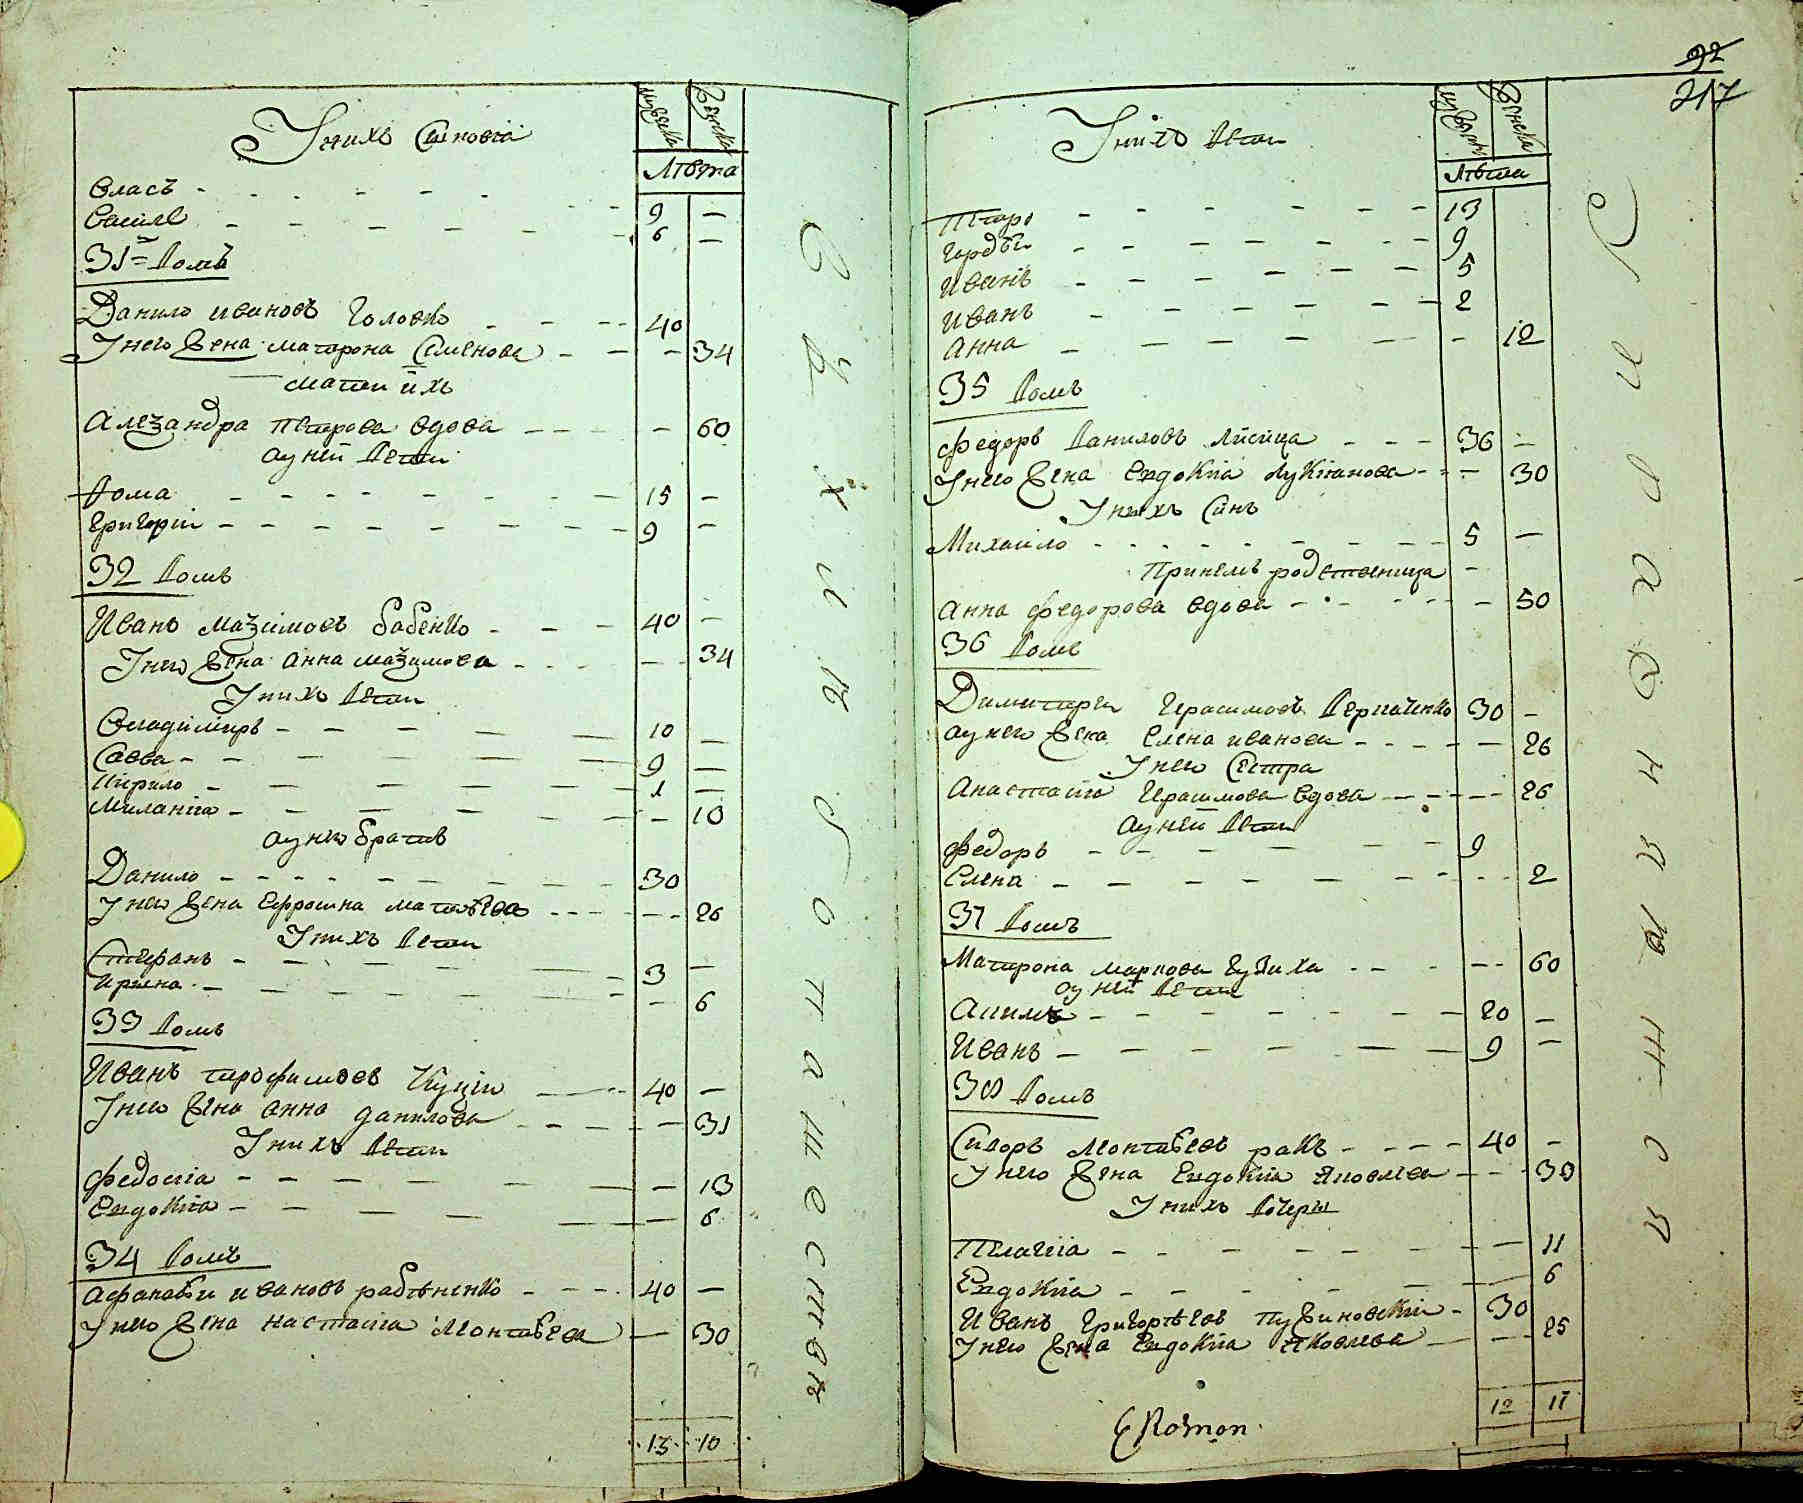 У нихъ Синовіа
мужеска
женска
Лѣта
Власъ - - - - - - 9 —
Василе - - - - - - 6 —
31 = Домъ
Данило ивановъ Головко - - - 40
У него жена матрона Семенова - - - 34
мати ихъ
Алеѯандра петрова вдова - - - - 60
а у ней дети
Фома - - - - - - 15 —
Григорій - - - - - - 9 —
32 Домъ
Иванъ маѯимовъ бабенко - - - 40 —
У него жена анна маѯимова - - - - 34
У нихъ дети
Владимиръ - - - - - 10 —
Савва - - - - - 9 —
Кирило - - - - - 1 —
Миланиа - - - - - - 10
а у него братъ
Данило - - - - - - 30
У него жена Ефросина матвѣева - - - - 26
У нихъ дети
Стефанъ - - - - - 3 —
Ирина - - - - - - 6
33 Домъ
Иванъ трофимовъ - - 40 —
У него жена анна данилова - - - - 31
У нихъ дети
Федосіа - - - - - - 13
Евдокіа - - - - - - 6
34 Домъ
Афанасѣи ивановъ - - - - 40 —
У него жена настасіа Леонтиѣва — 30
13 10
92
217
У нихъ дети
мужеск
женска
Лѣта
Петро - - - - - - 13
Гордѣи - - - - - - 9
Иванъ - - - - - - 5
Иванъ - - - - - - 2
Анна - - - - - - 12
35 Домъ
Федоръ Даниловъ Лисица - - - 36 —
У него жена Евдокіа Лукианова - - - 30
У нихъ Синъ
Михаило - - - - - - 5 —
При немъ родственица
Анна федорова вдова - - - - - 50
36 Домъ
Димитріи Герасимовъ Дергаченко 30 —
а у него жена Елена иванова - - - - - 26
У него Сестра
Анастасіа Герасимова вдова - - - - - 26
а у ней дети
Федоръ - - - - - 9
Елена - - - - - - - 2
37 Домъ
Матрона маркова - - - - - 60
а у ней дети
Акимъ - - - - - - 20 —
Иванъ - - - - - - 9 —
38 Домъ
Сидоръ Леонтиѣвъ ракъ - - - - 40 —
У него жена Евдокіа Яковлева - - - 39
У нихъ дочери
Пелагіа - - - - - - 11
Евдокіа - - - - - - 6
Иванъ Григорѣевъ - 30
У него жена Евдокіа Яковлева - - - 25
12 11